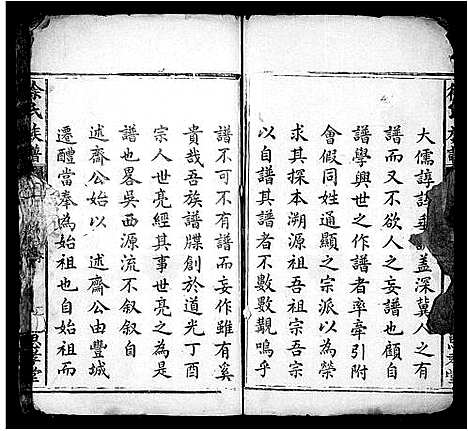 大儒諄諄垂 蓋深冀人之有
譜而又不欲人之妄譜也顧自
譜學興世之作譜者率牽引附
會假同姓通顯之宗派以為榮
求其探本溯源祖吾祖宗吾宗
以自譜其譜者不數數覯嗚乎
譜不可不有譜而妄作雖有奚
貴哉吾族譜牒創於道光丁酉
宗人世亮經其事世亮之為是
譜也畧吳西源流不叙叙自
述齋公始以 述齋公由豐城
遷醴當奉為始祖也自始祖而
徐氏族譜
思孝堂